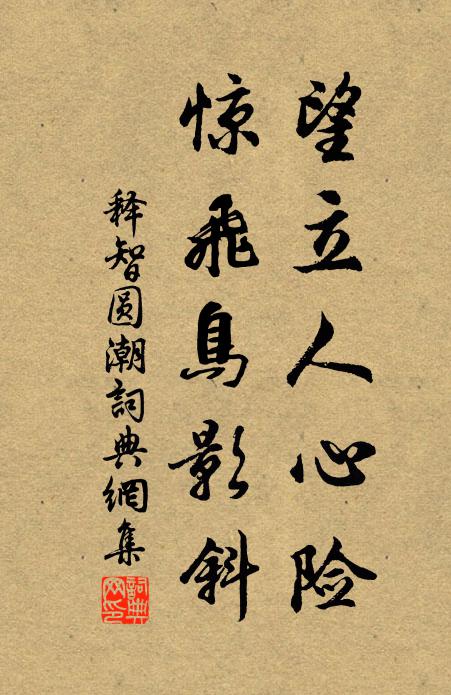 望立人心险
惊飞鳥影斜
释智圆潮詞典網集
詞典网印